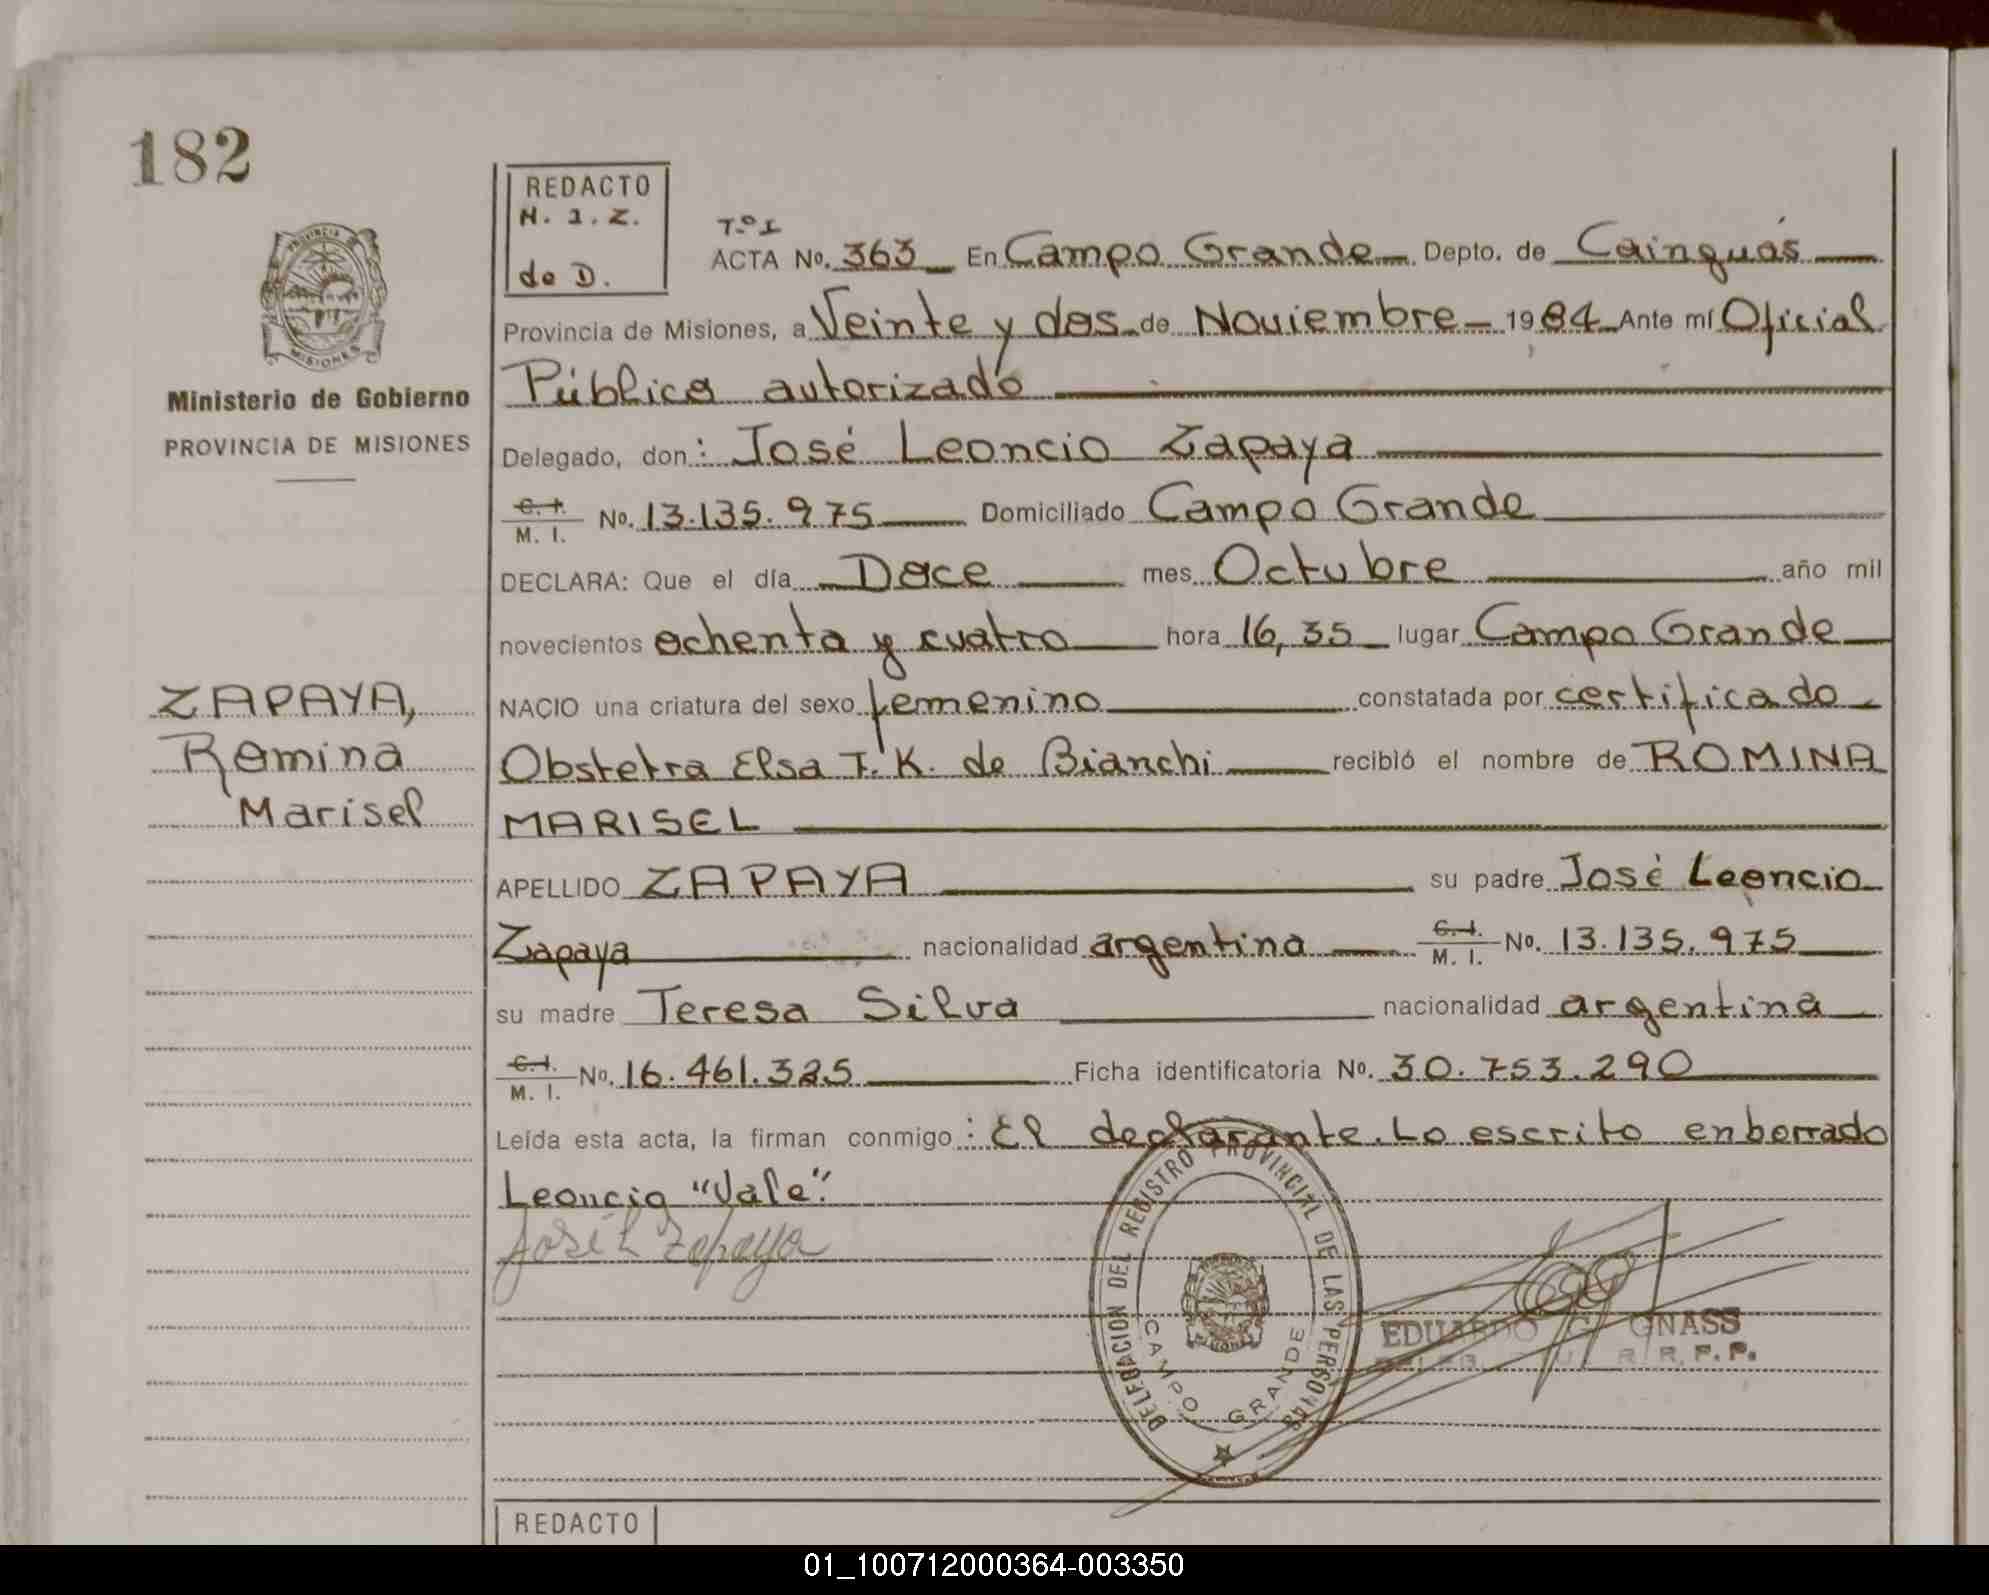 182
REDACTO
N. I. Z.
de D.
PROVINCIA DE
MISIONES
Ministerio de Gobierno
PROVINCIA DE MISIONES
T.º I
ACTA No. 363 En Campo Grande Depto. de Cainguás
Provincia de Misiones, a Veinte y dos de Noviembre 1984 Ante mí Oficial
Público autorizado
Delegado, don: José Leoncio Zapaya
C. I. M. I. No. 13.135.975 Domiciliado Campo Grande
DECLARA: Que el día Doce mes Octubre año mil
novecientos ochenta y cuatro hora 16,35 lugar Campo Grande
ZAPAYA,
Romina
Marisel
NACIO una criatura del sexo femenino constatada por certificado
Obstetra Elsa T. K. de Bianchi recibió el nombre de ROMINA
MARISEL
APELLIDO ZAPAYA su padre José Leoncio
Zapaya nacionalidad argentina C. I. M. I. No. 13.135.975
su madre Teresa Silva nacionalidad argentina
C. I. M. I. No. 16.461.325 Ficha identificatoria No. 30.753.290
Leída esta acta, la firman conmigo: El declarante. Lo escrito enborrado
Leoncio "Vale".
José L Zapaya
DELEGACION DEL REGISTRO PROVINCIAL DE LAS PERSONAS
CAMPO GRANDE
EDUARDO G. GNASS
R. R. P. P.
REDACTO
01_100712000364-003350